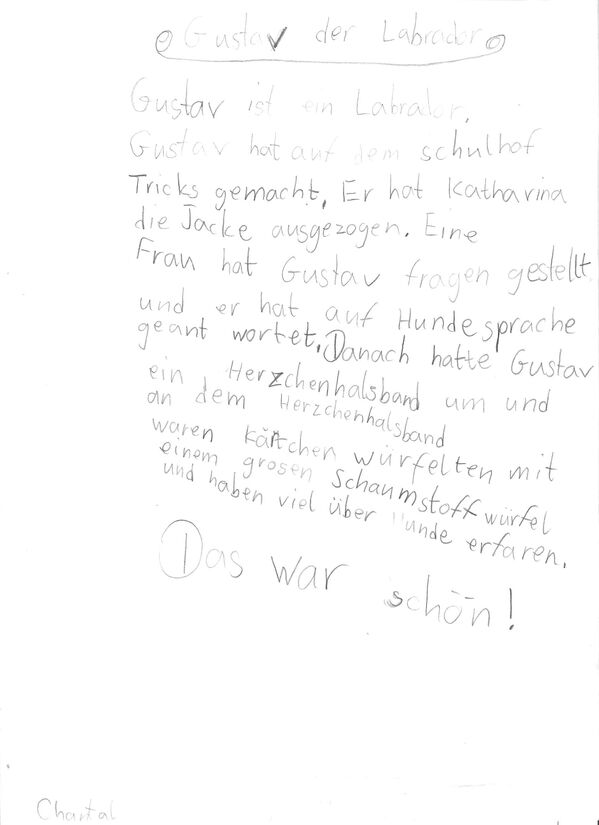 Gustav der Labrador
Gustav ist ein Labrador.
Gustav hat auf dem schulhof
Tricks gemacht. Er hat Katharina
die Jacke ausgezogen. Eine
Frau hat Gustav fragen gestellt
und er hat auf Hundesprache
geant wortet. Danach hatte Gustav
ein Herzchenhalsband um und
an dem Herzchenhalsband
waren kärtchen würfelten mit
einem grosen Schaumstoffwürfel
und haben viel über Hunde erfaren.
Das war schön!
Chantal